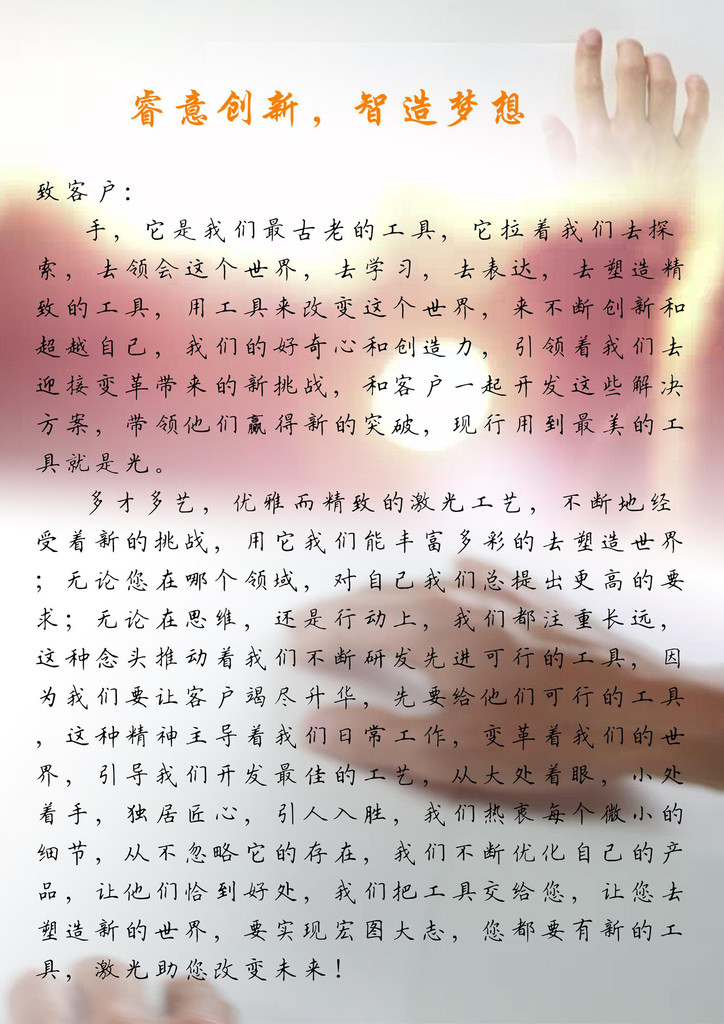 睿意创新，智造梦想
致客户：
手，它是我们最古老的工具，它拉着我们去探
索，去领会这个世界，去学习，去表达，去塑造精
致的工具，用工具来改变这个世界，来不断创新和
超越自己，我们的好奇心和创造力，引领着我们去
迎接变革带来的新挑战，和客户一起开发这些解决
方案，带领他们赢得新的突破，现行用到最美的工
具就是光。
多才多艺，优雅而精致的激光工艺，不断地经
受着新的挑战，用它我们能丰富多彩的去塑造世界
；无论您在哪个领域，对自己我们总提出更高的要
求；无论在思维，还是行动上，我们都注重长远，
这种念头推动着我们不断研发先进可行的工具，因
为我们要让客户竭尽升华，先要给他们可行的工具
，这种精神主导着我们日常工作，变革着我们的世
界，引导我们开发最佳的工艺，从大处着眼，小处
着手，独居匠心，引人入胜，我们热衷每个微小的
细节，从不忽略它的存在，我们不断优化自己的产
品，让他们恰到好处，我们把工具交给您，让您去
塑造新的世界，要实现宏图大志，您都要有新的工
具，激光助您改变未来！